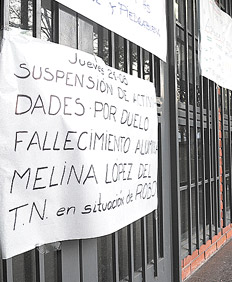 Y
Jueves 25-08
SUSPENSIÓN DE ACTIVI
DADES POR DUELO
FALLECIMIENTO ALUMNA
MELINA LOPEZ DEL
T.N. en situación de ROBO